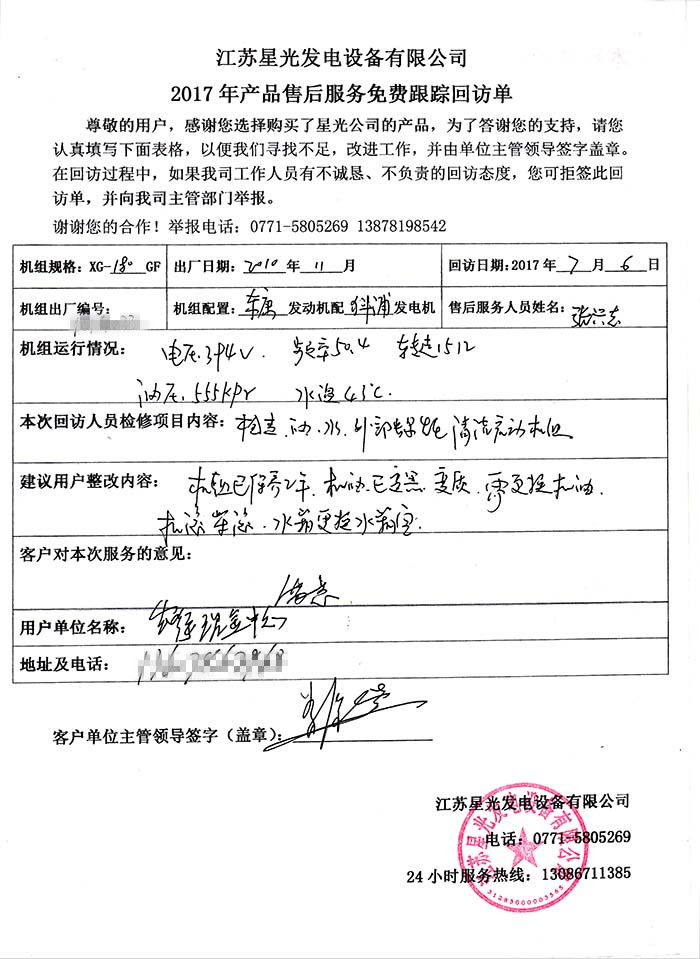 江苏星光发电设备有限公司
2017年产品售后服务免费跟踪回访单
尊敬的用户，感谢您选择购买了星光公司的产品，为了答谢您的支持，请您
认真填写下面表格，以便我们寻找不足，改进工作，并由单位主管领导签字盖章。
在回访过程中，如果我司工作人员有不诚恳、不负责的回访态度，您可拒签此回
访单，并向我司主管部门举报。
谢谢您的合作！举报电话：0771-5805269 13878198542
机组规格：XG-180 GF 出厂日期：2010年 11 月 回访日期：2017年 7 月 6 日
机组出厂编号： 机组配置：东康 发动机配 斯浦 发电机 售后服务人员姓名：
机组运行情况： 电压394V. 频率50.4 转速1512
油压555kpr 水温43℃.
本次回访人员检修项目内容：检查.油.水.外部 清洁 机组
建议用户整改内容： 机组已保养2年.机油已变黑.变质.需更换机油.
机滤 柴滤.水箱更换水箱宝.
客户对本次服务的意见：
满意
用户单位名称： 中心
地址及电话：
客户单位主管领导签字（盖章）：
江苏星光发电设备有限公司
电话：0771-5805269
24小时服务热线：13086711385
江苏星光发电设备有限公司